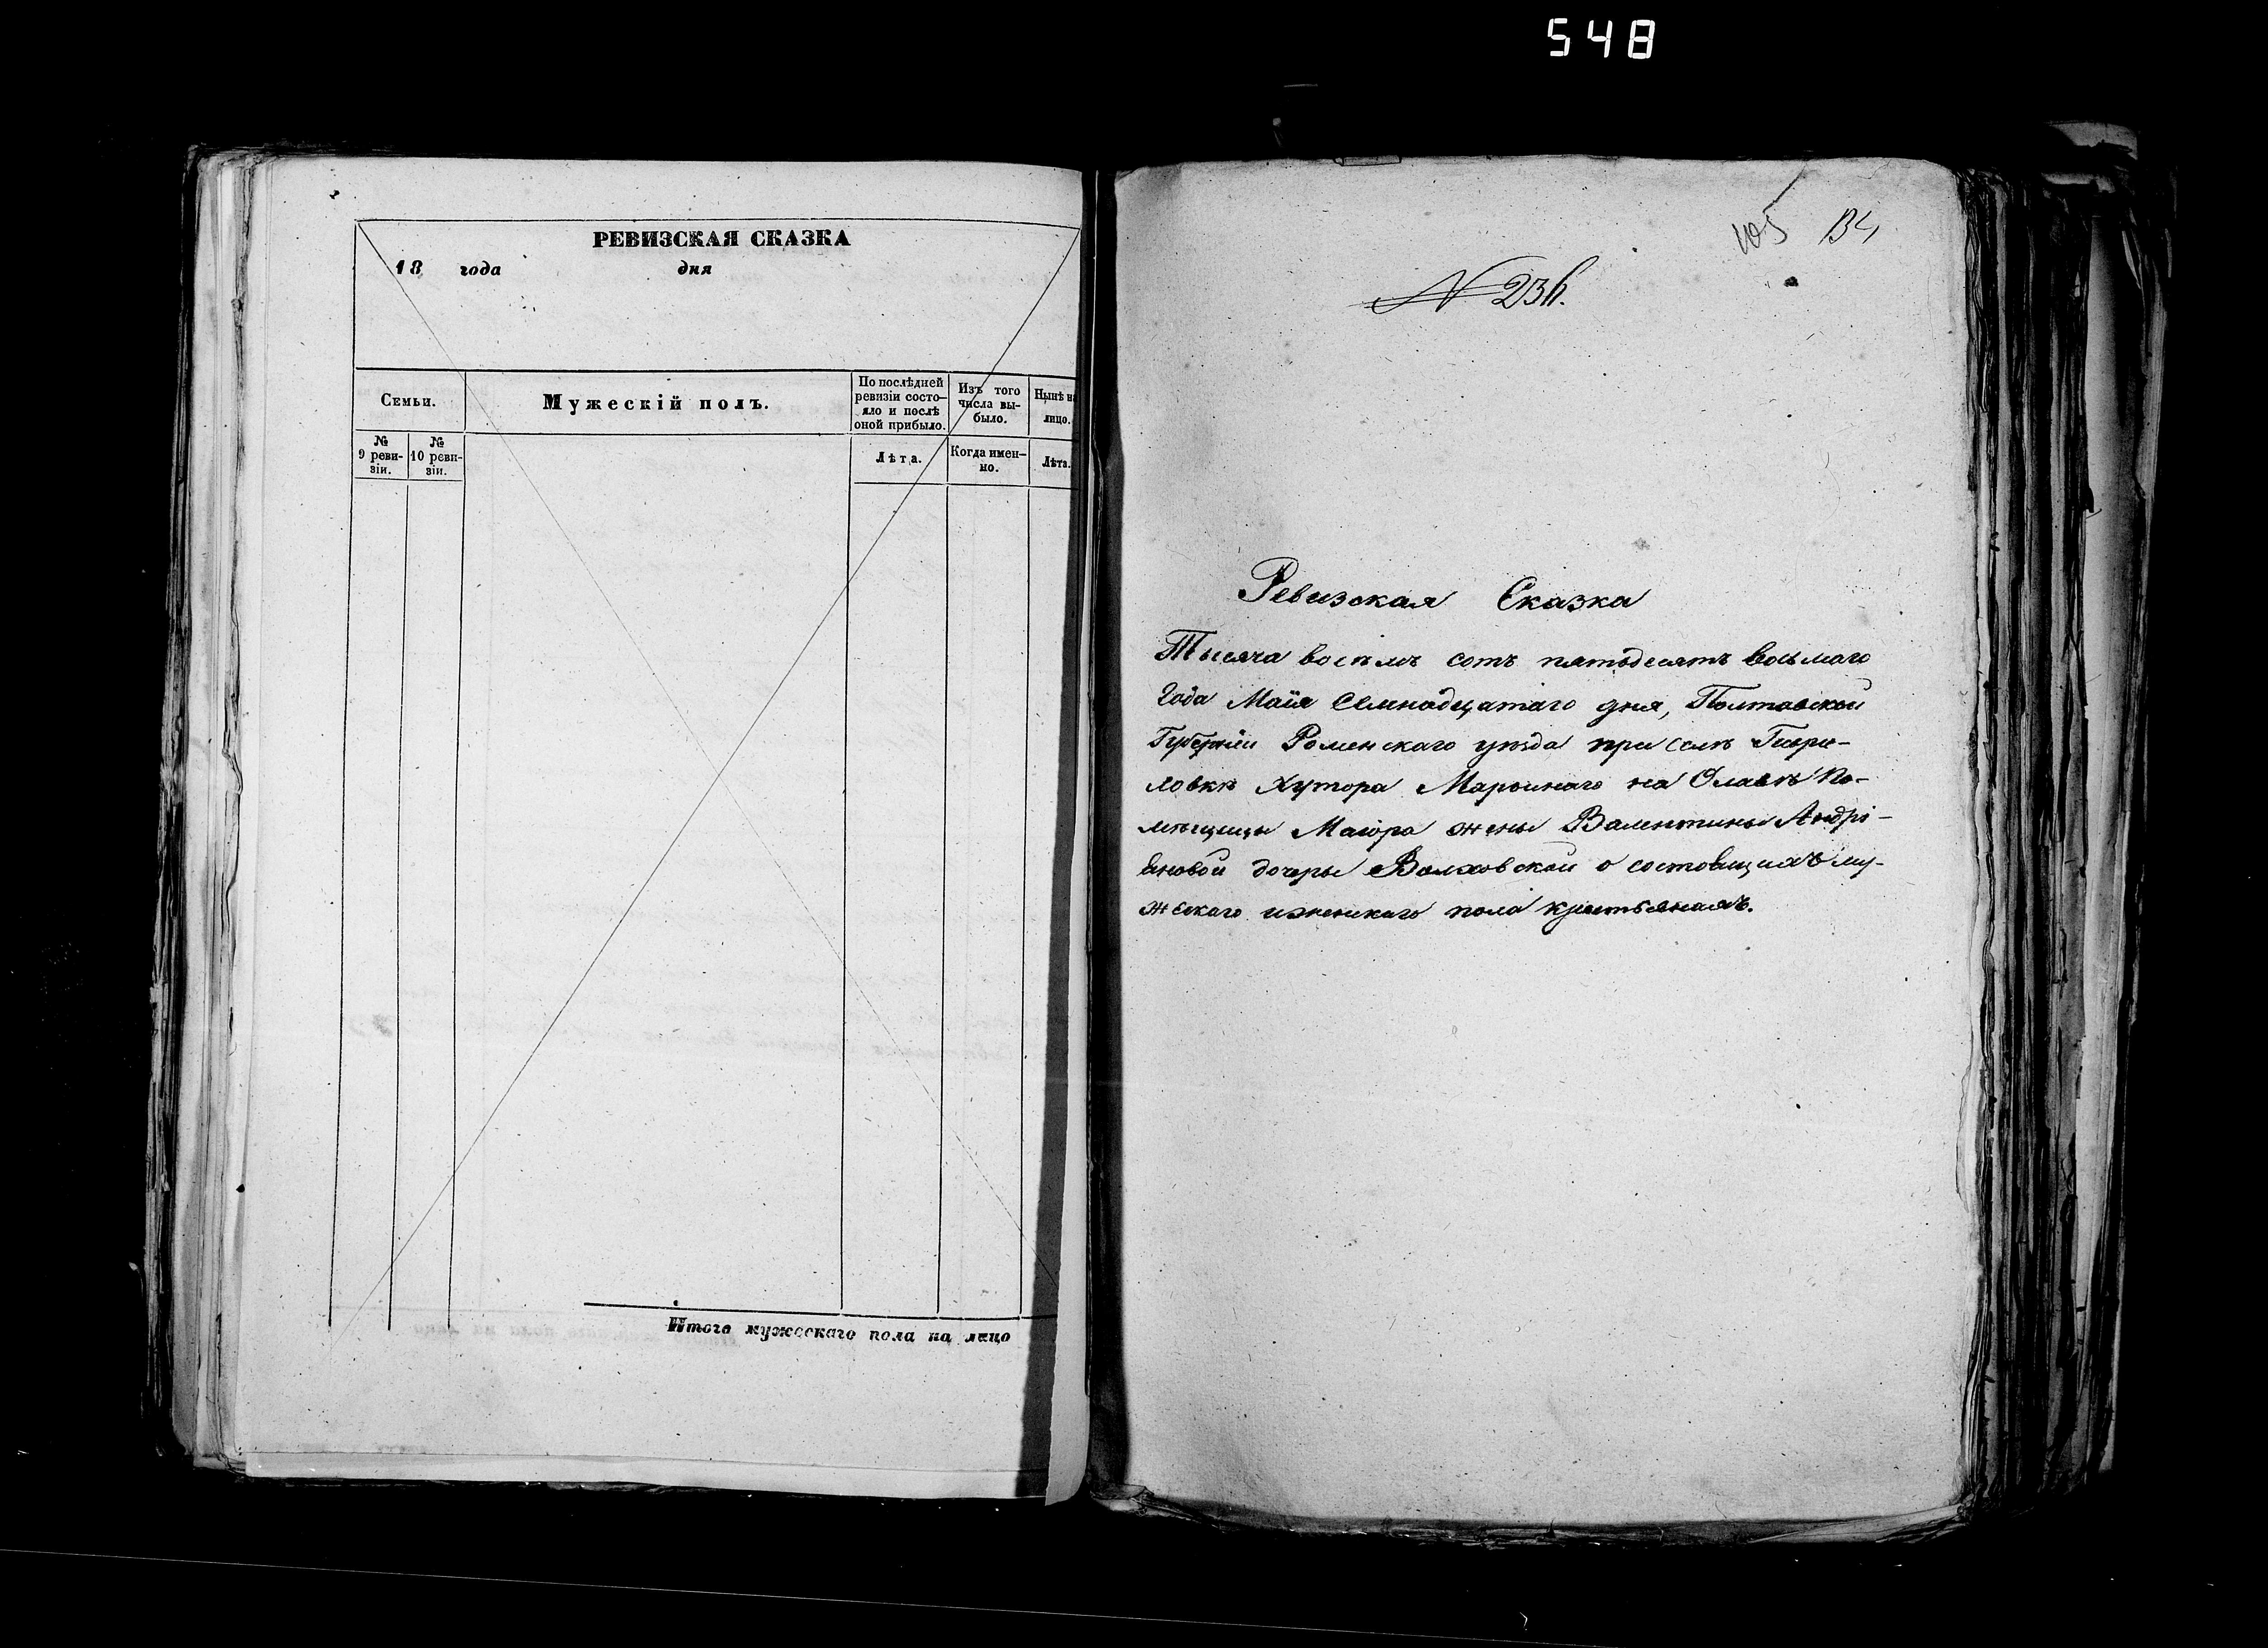 548
РЕВИЗСКАЯ СКАЗКА
18 года дня
Семьи.
Мужескій полъ.
По послѣдней
ревизіи состо-
яло и послѣ
оной прибыло.
Изъ того
числа вы-
было.
Нынѣ на
лицо.
№
9 реви-
зіи.
№
10 реви-
зіи.
Лѣта.
Когда имен-
но.
Лѣта.
Итого мужескаго пола на лицо
105 134
№ 236.
Ревизская Сказка
Тысяча восѣмъ сотъ пятьдесятъ восьмаго
года Маія Семнадцатаго дня, Полтавской
Губерніи Роменскаго уѣзда при селѣ Гаври-
ловкѣ Хутора на По-
мѣщицы Маіора жены Валентины Андрі-
евновой дочеры Волховской о состоящихъ му-
жескаго и женскаго пола крестьянахъ.